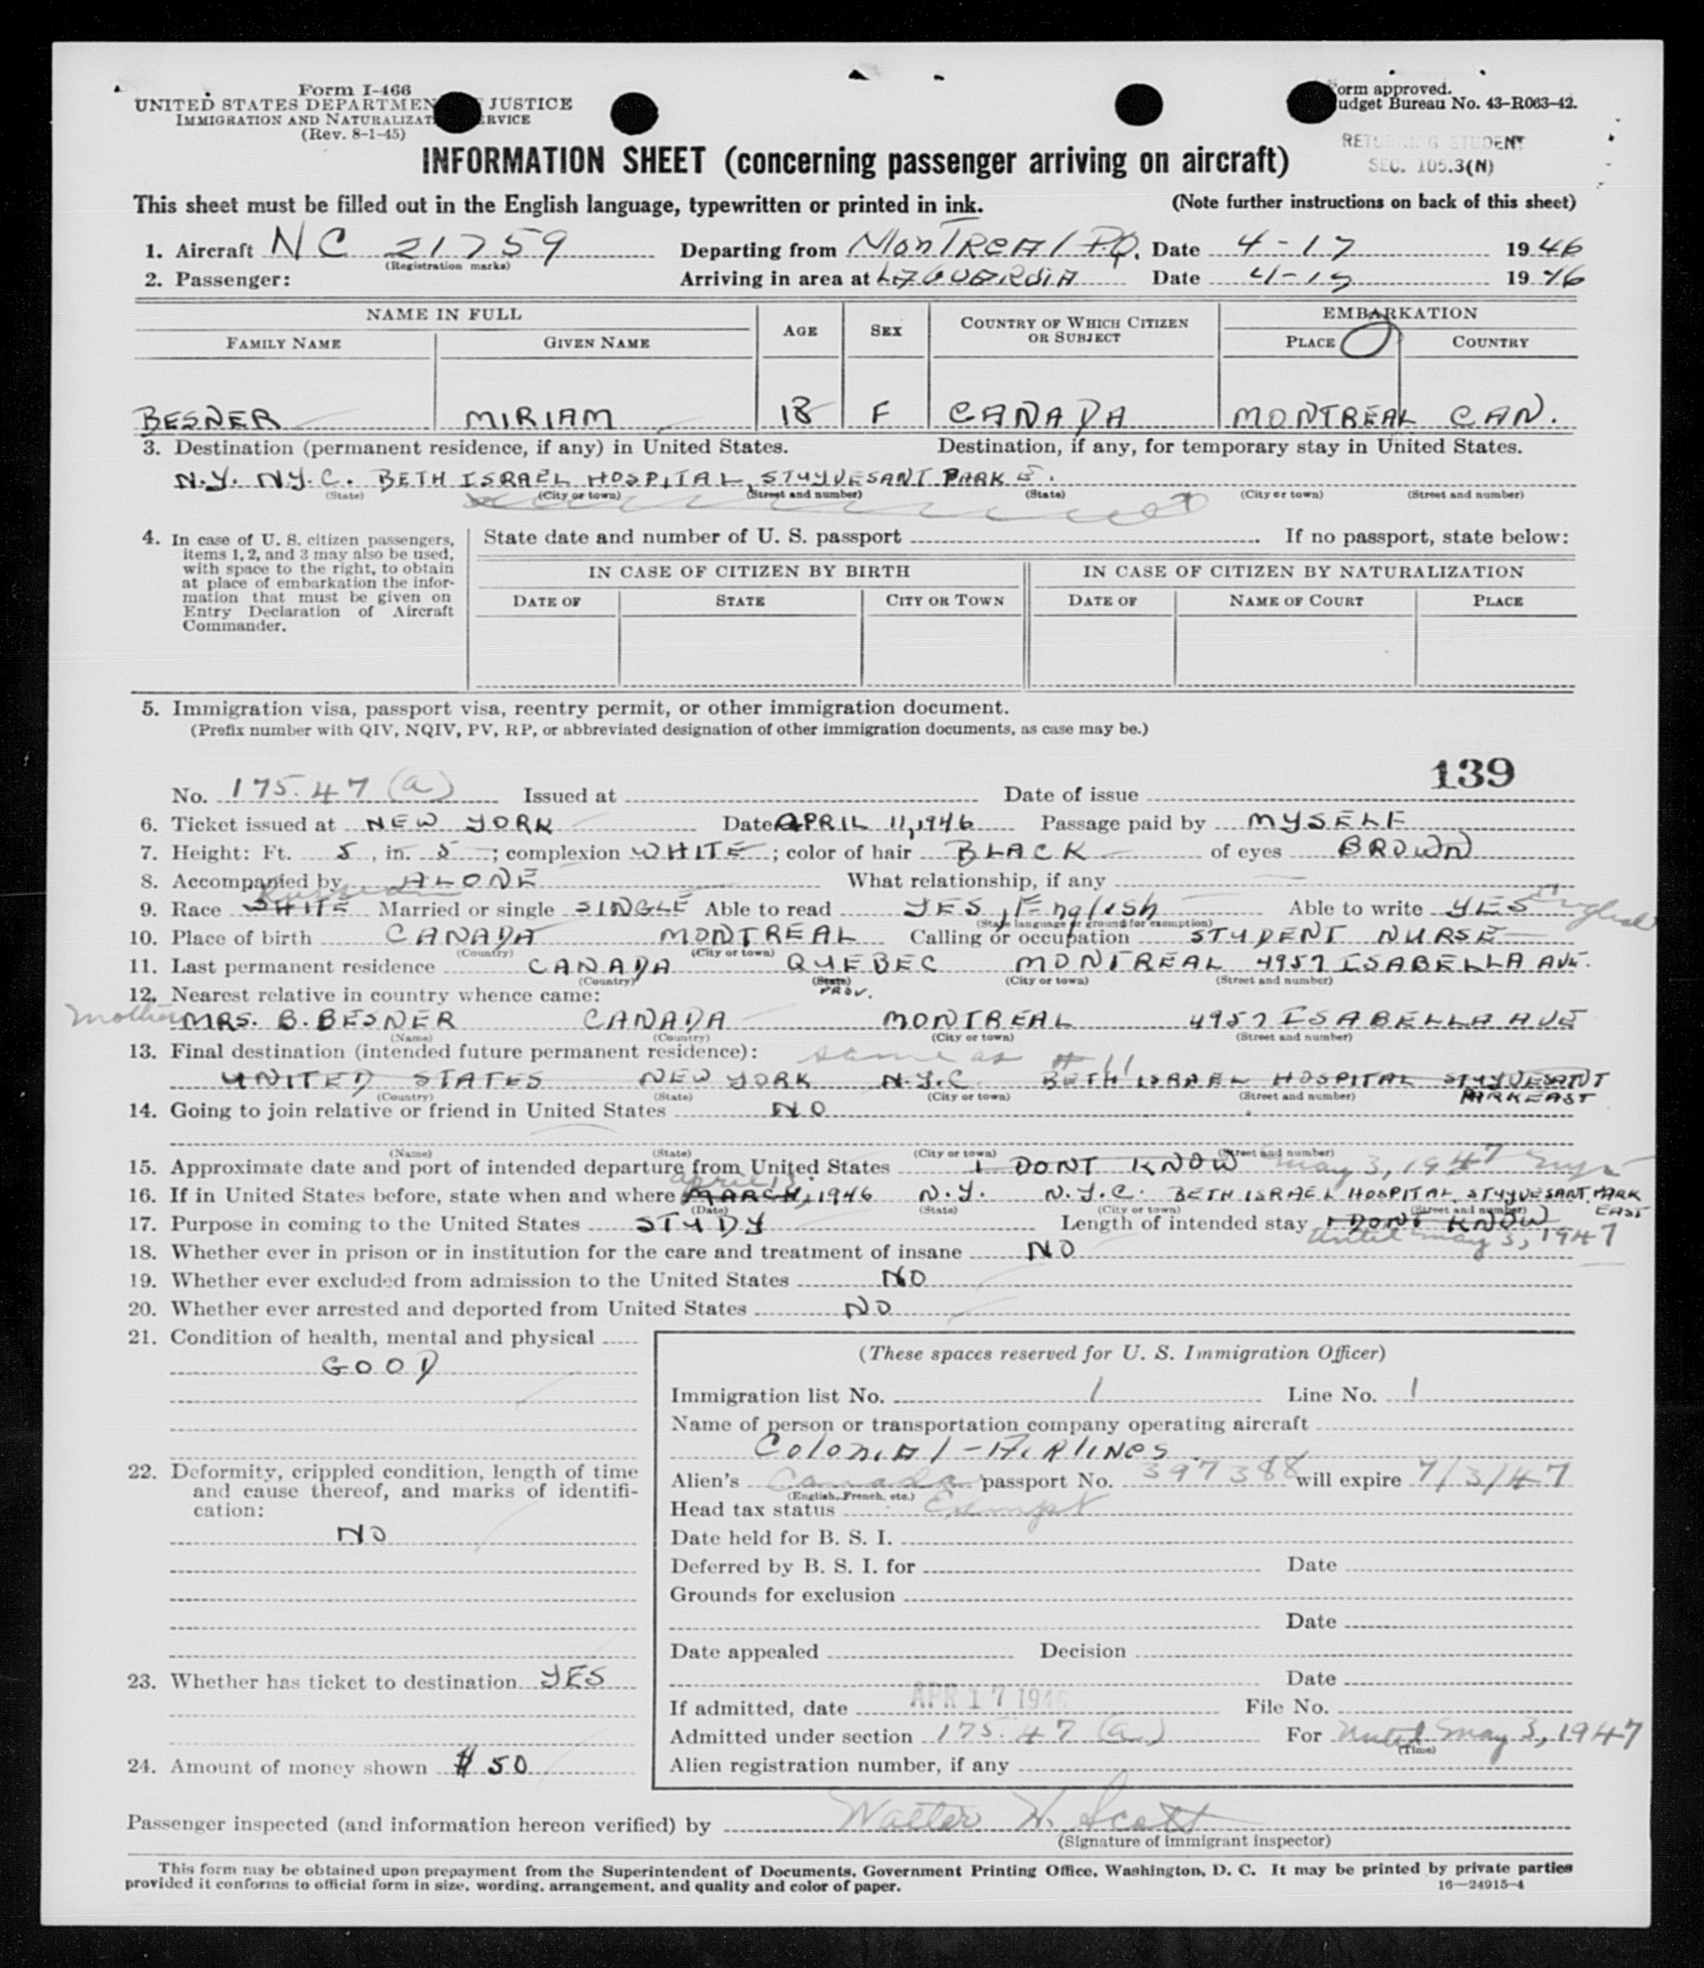 Form I-466
UNITED STATES DEPARTMEN JUSTICE
IMMIGRATION AND NATURALIZAT RVICE
(Rev. 8-1-45)
orm approved.
udget Bureau No. 43-R063-42.
STUDENT
SEC. 105.3(N)
INFORMATION SHEET (concerning passenger arriving on aircraft)
This sheet must be filled out in the English language, typewritten or printed in ink. (Note further instructions on back of this sheet)
1. Aircraft NC 21759 Departing from MONTREAL P.Q. Date 4-17 1946
(Registration marks)
2. Passenger: Arriving in area at LAGUARDIA Date 4-17 1946
NAME IN FULL AGE SEX COUNTRY OF WHICH CITIZEN OR SUBJECT EMBARKATION
FAMILY NAME GIVEN NAME PLACE COUNTRY
BESNER MIRIAM 18 F CANADA MONTREAL CAN.
3. Destination (permanent residence, if any) in United States. Destination, if any, for temporary stay in United States.
N.Y. N.Y.C. BETH ISRAEL HOSPITAL, STUYVESANT PARK E.
(State) (City or town) (Street and number) (State) (City or town) (Street and number)
4. In case of U. S. citizen passengers, items 1, 2, and 3 may also be used, with space to the right, to obtain at place of embarkation the information that must be given on Entry Declaration of Aircraft Commander.
State date and number of U. S. passport If no passport, state below:
IN CASE OF CITIZEN BY BIRTH IN CASE OF CITIZEN BY NATURALIZATION
DATE OF STATE CITY OR TOWN DATE OF NAME OF COURT PLACE
5. Immigration visa, passport visa, reentry permit, or other immigration document.
(Prefix number with QIV, NQIV, PV, RP, or abbreviated designation of other immigration documents, as case may be.)
139
No. 175.47 (a) Issued at Date of issue
6. Ticket issued at NEW YORK Date APRIL 11, 1946 Passage paid by MYSELF
7. Height: Ft. 5, in. 5; complexion WHITE; color of hair BLACK of eyes BROWN
8. Accompanied by ALONE What relationship, if any
9. Race WHITE Married or single SINGLE Able to read YES, English Able to write YES English
(State language or ground for exemption)
10. Place of birth CANADA MONTREAL Calling or occupation STUDENT NURSE
(Country) (City or town)
11. Last permanent residence CANADA QUEBEC MONTREAL 4957 ISABELLA AVE.
(Country) (State) PROV. (City or town) (Street and number)
12. Nearest relative in country whence came:
Mother MRS. B. BESNER CANADA MONTREAL 4957 ISABELLA AVE
(Name) (Country) (City or town) (Street and number)
13. Final destination (intended future permanent residence): same as #11
UNITED STATES NEW YORK N.Y.C. BETH ISRAEL HOSPITAL STUYVESANT PARK EAST
(Country) (State) (City or town) (Street and number)
14. Going to join relative or friend in United States NO
(Name) (State) (City or town) (Street and number)
15. Approximate date and port of intended departure from United States I DONT KNOW May 3, 1947
16. If in United States before, state when and where MARCH, April 13 1946 N.Y. N.Y.C. BETH ISRAEL HOSPITAL, STUYVESANT PARK EAST
(Date) (State) (City or town) (Street and number)
17. Purpose in coming to the United States STUDY Length of intended stay I DONT KNOW
Until May 3, 1947
18. Whether ever in prison or in institution for the care and treatment of insane NO
19. Whether ever excluded from admission to the United States NO
20. Whether ever arrested and deported from United States NO
21. Condition of health, mental and physical
GOOD
22. Deformity, crippled condition, length of time and cause thereof, and marks of identification:
NO
23. Whether has ticket to destination YES
24. Amount of money shown $ 50
(These spaces reserved for U. S. Immigration Officer)
Immigration list No. 1 Line No. 1
Name of person or transportation company operating aircraft
COLONIAL-AIRLINES
Alien's Canada passport No. 397388 will expire 7/3/47
(English, French, etc.)
Head tax status Exempt
Date held for B. S. I.
Deferred by B. S. I. for Date
Grounds for exclusion
Date
Date appealed Decision
Date
If admitted, date APR 17 1946 File No.
Admitted under section 175.47 (a) For Until May 3, 1947
(Time)
Alien registration number, if any
Passenger inspected (and information hereon verified) by Walter H. Scott
(Signature of immigrant inspector)
This form may be obtained upon prepayment from the Superintendent of Documents, Government Printing Office, Washington, D. C. It may be printed by private parties
provided it conforms to official form in size, wording, arrangement, and quality and color of paper. 16—24915-4